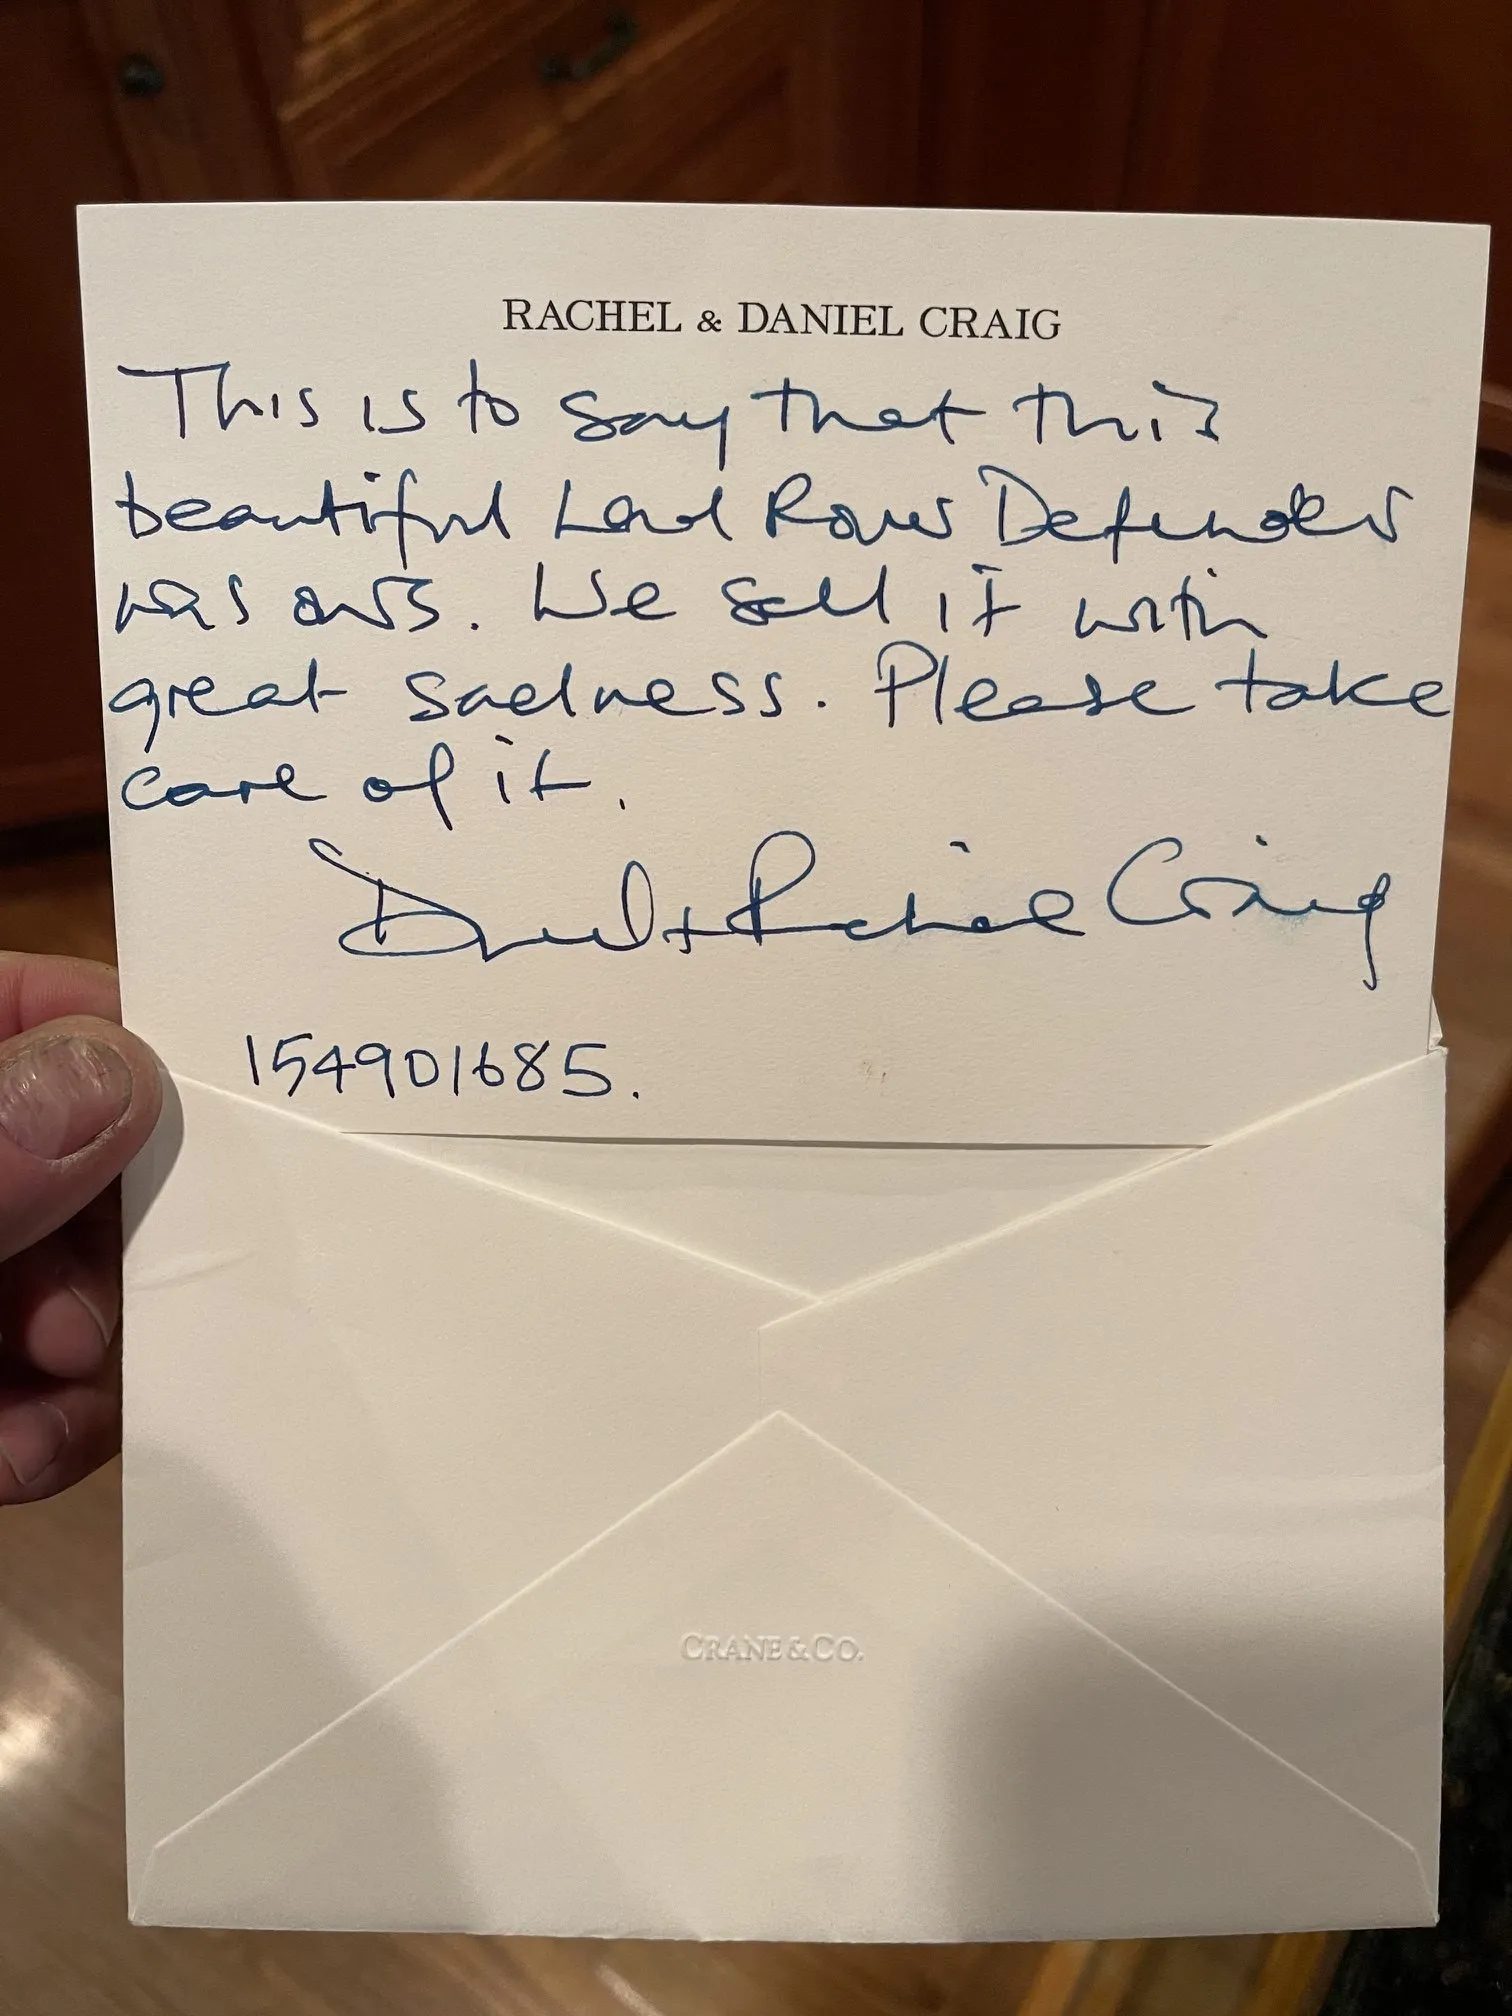 RACHEL & DANIEL CRAIG
This is to say that this
beautiful Land Rover Defender
was ours. We sell it with
great sadness. Please take
care of it.
Daniel + Rachel Craig
154901685.
CRANE & CO.